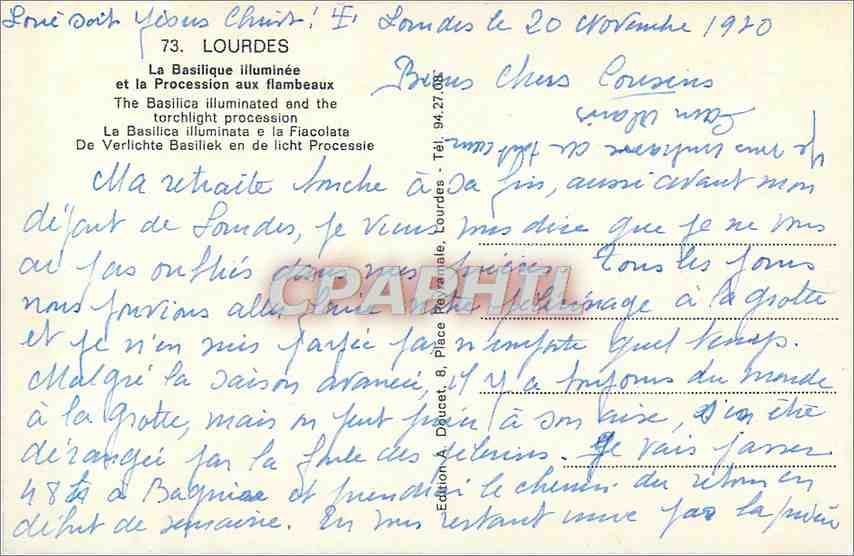 Loué soit Jésus Christ! Lourdes le 20 Novembre 1970
73. LOURDES
La Basilique illuminée
et la Procession aux flambeaux
The Basilica illuminated and the
torchlight procession
La Basilica illuminata e la Fiacolata
De Verlichte Basiliek en de licht Processie
Chers Cousins
Je vous embrasse de tout cœur
Ma retraite touche à sa fin, aussi avant mon
départ de Lourdes, je viens vous dire que je ne vous
ai pas oubliés dans mes prières. Tous les jours
nous pouvions aller faire notre pèlerinage à la grotte
et je n'en suis passée par n'importe quel temps.
Malgré la saison avancée, il y a toujours du monde
à la grotte, mais on peut prier à son aise, être
dérangée par la foule des pèlerins. Je vais passer
48 à et prendrai le chemin du retour en
début de semaine. En vous restant unie par la prière
Edition A. Doucet, 8, Place Peyramale, Lourdes - Tél. 94.27.08
CPARAMA